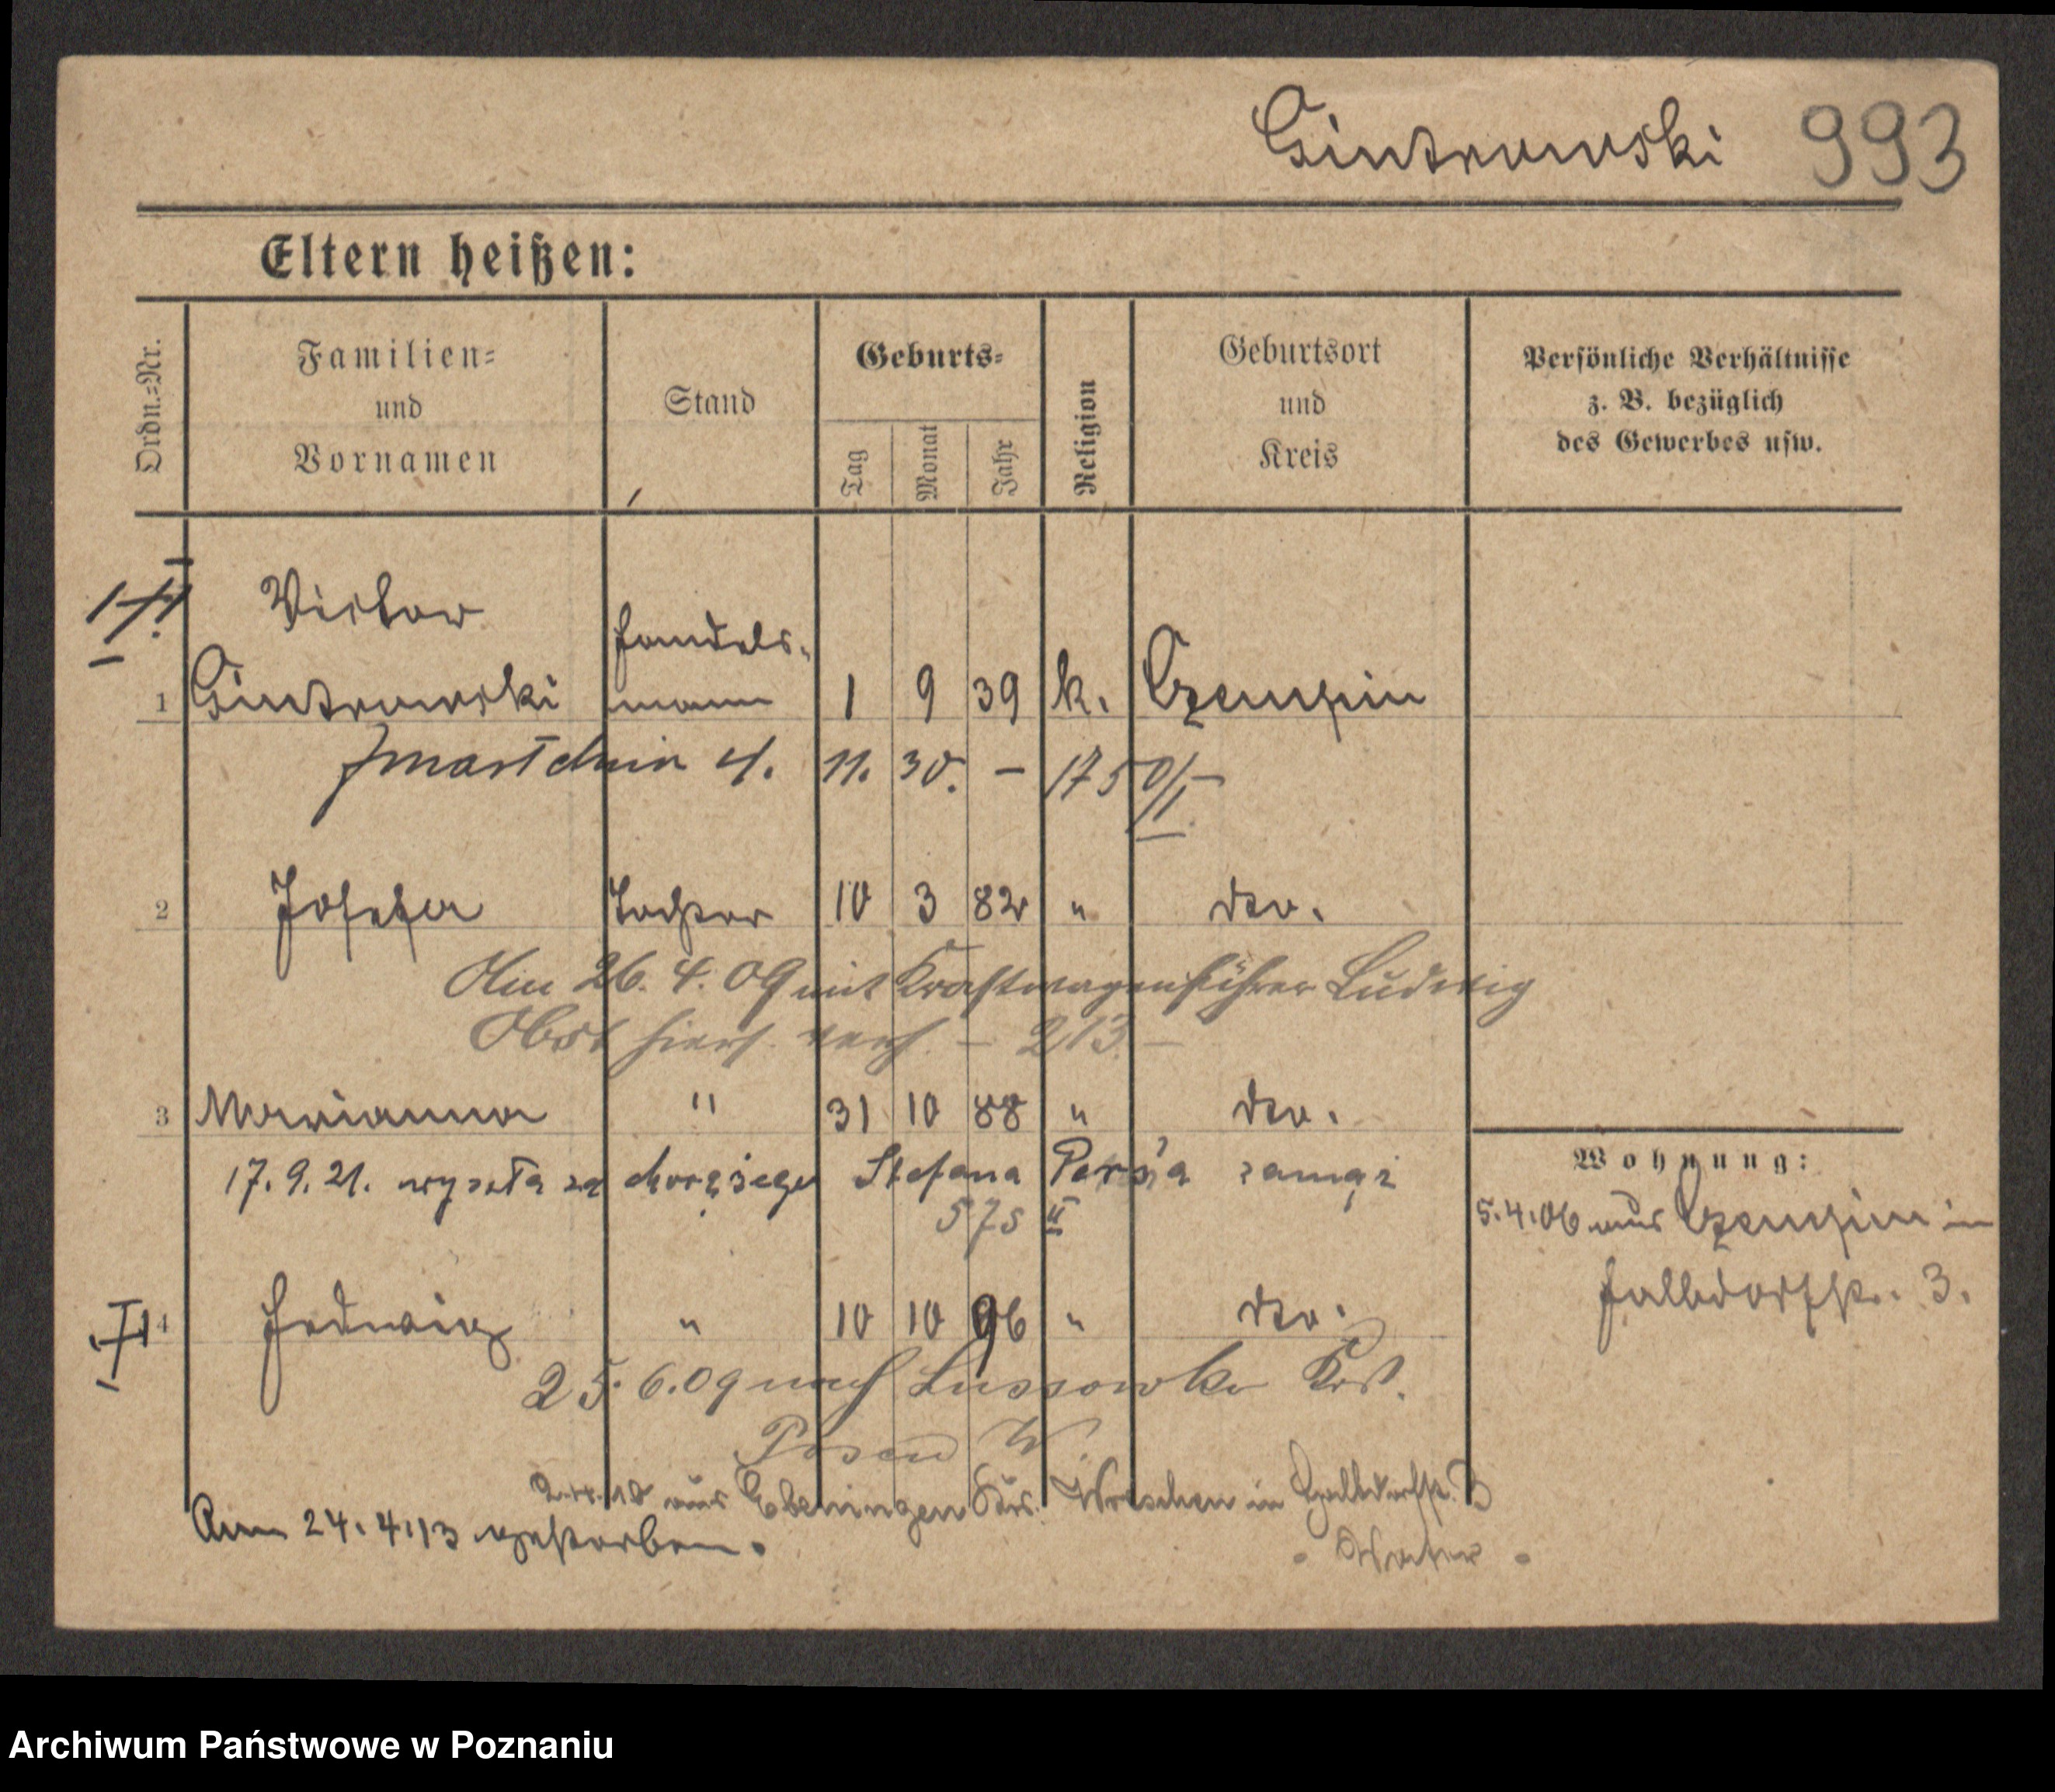 Gintrowski 993
Eltern heißen:
Ordn.=Nr.
Familien=
und
Vornamen
Stand
Geburts=
Tag
Monat
Jahr
Religion
Geburtsort
und
Kreis
Persönliche Verhältnisse
z. B. bezüglich
des Gewerbes usw.
Victor
Handels-
1 Gintrowski mann 1 9 39 k. Czempin
zmarł dnia 4. 11. 30. — 1750/II
2 Josefa Tochter 10 3 82 " dto.
Am 26. 4. 09 mit Kraftwagenführer Ludwig
Obst hiers. verh. — 213. —
3 Marianna " 31 10 88 " dto.
17. 9. 21. wyszła za chorążego Stefana zamąż
575 II
Wohnung:
5.4.06 aus Czempin in
Halbdorfstr. 3.
4 Hedwig " 10 10 96 " dto.
25. 6. 09 nach Lussowko Krs.
Posen W.
2.4.10 aus Ebeningen Krs. Wreschen in Halbdorfstr. 3
Am 24. 4. 13 gestorben.
Vater
Archiwum Państwowe w Poznaniu